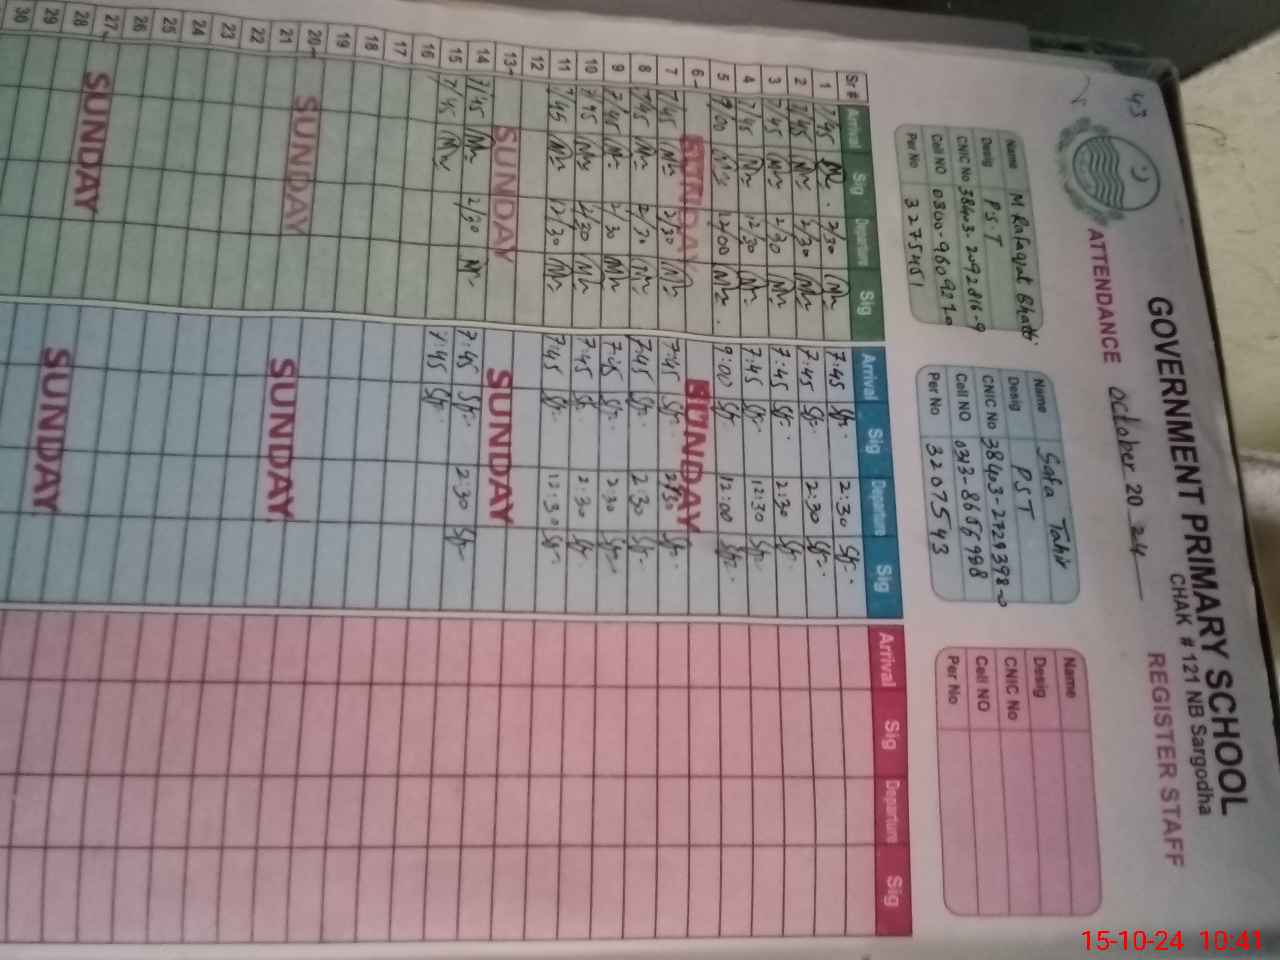 43
GOVERNMENT PRIMARY SCHOOL
CHAK # 121 NB Sargodha
ATTENDANCE October 2024 REGISTER STAFF
Name M Rafaqat Bhatti
Desig P.S.T
CNIC No 38403-2092816-9
Cell NO 0300-9609270
Per No 3275451
Name Safa Tahir
Desig PST
CNIC No 38403-2729398-0
Cell NO 0313-8656998
Per No 3207543
Name
Desig
CNIC No
Cell NO
Per No
Sr# Arrival Sig Departure Sig Arrival Sig Departure Sig Arrival Sig Departure Sig
1 7/45 2/30 7:45 2:30
2 7/45 2/30 7:45 2:30
3 7/45 2/30 7:45 2:30
4 7/45 12/30 7:45 12:30
5 9/00 12/00 9:00 12:00
6 SUNDAY SUNDAY
7 7/45 2/30 7:45 2:30
8 7/45 2/30 7:45 2:30
9 7/45 2/30 7:45 2:30
10 7/45 2/30 7:45 2:30
11 7/45 12/30 7:45 12:30
12
13 SUNDAY SUNDAY
14 7/45 2/30 7:45 2:30
15 7/45 7:45
16
17
18
19
20 SUNDAY SUNDAY
21
22
23
24
25
26
27 SUNDAY SUNDAY
28
29
30
15-10-24 10:41